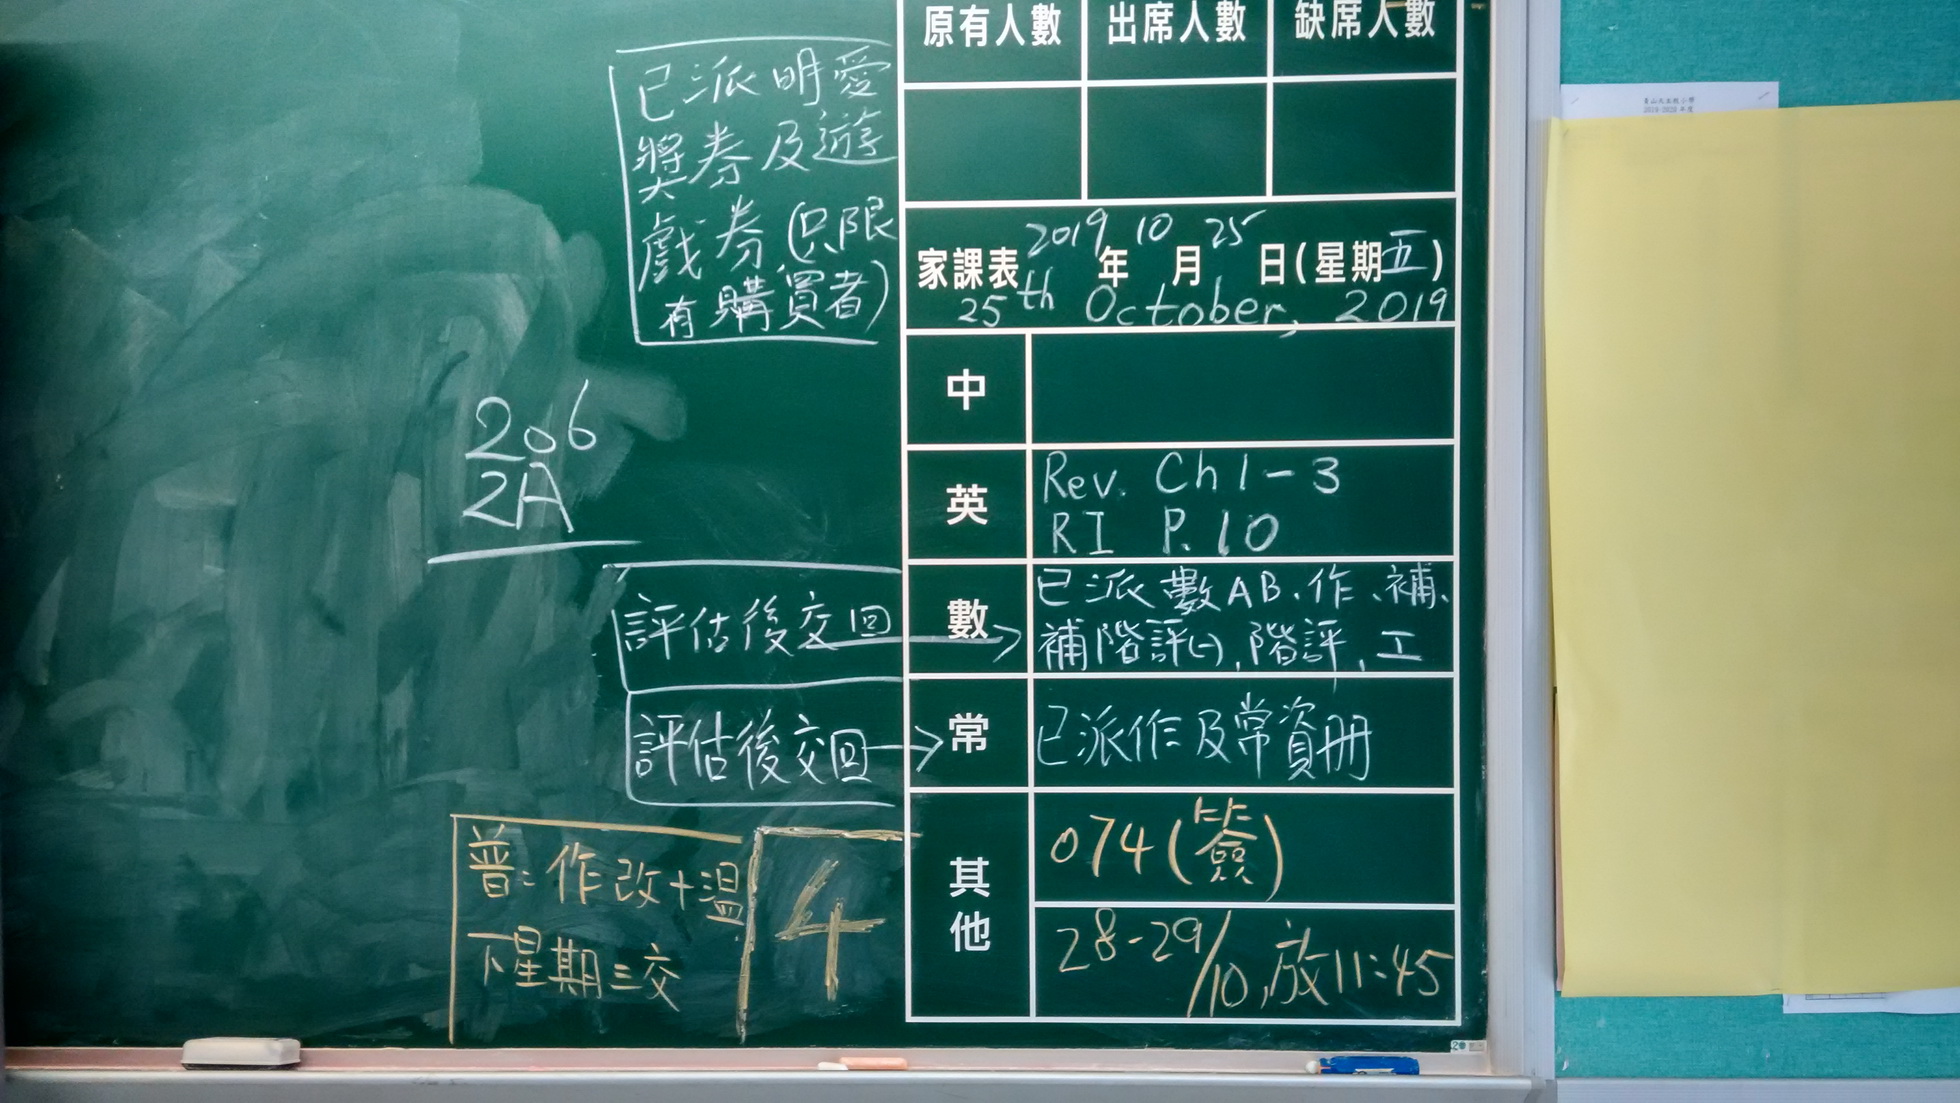 原有人數 出席人數 缺席人數
已派明愛
獎券及遊
戲券(只限
有購買者)
家課表 2019年 10月 25日(星期五)
25th October, 2019
中
206
2A
英
Rev. Ch 1-3
RI P.10
評估後交回
數
已派數AB、作、補、
補階評(一),階評,工
評估後交回
常
已派作及常資冊
普:作改+溫
下星期三交
4
其他
074(簽)
28-29/10,放11:45
2019-2020年度